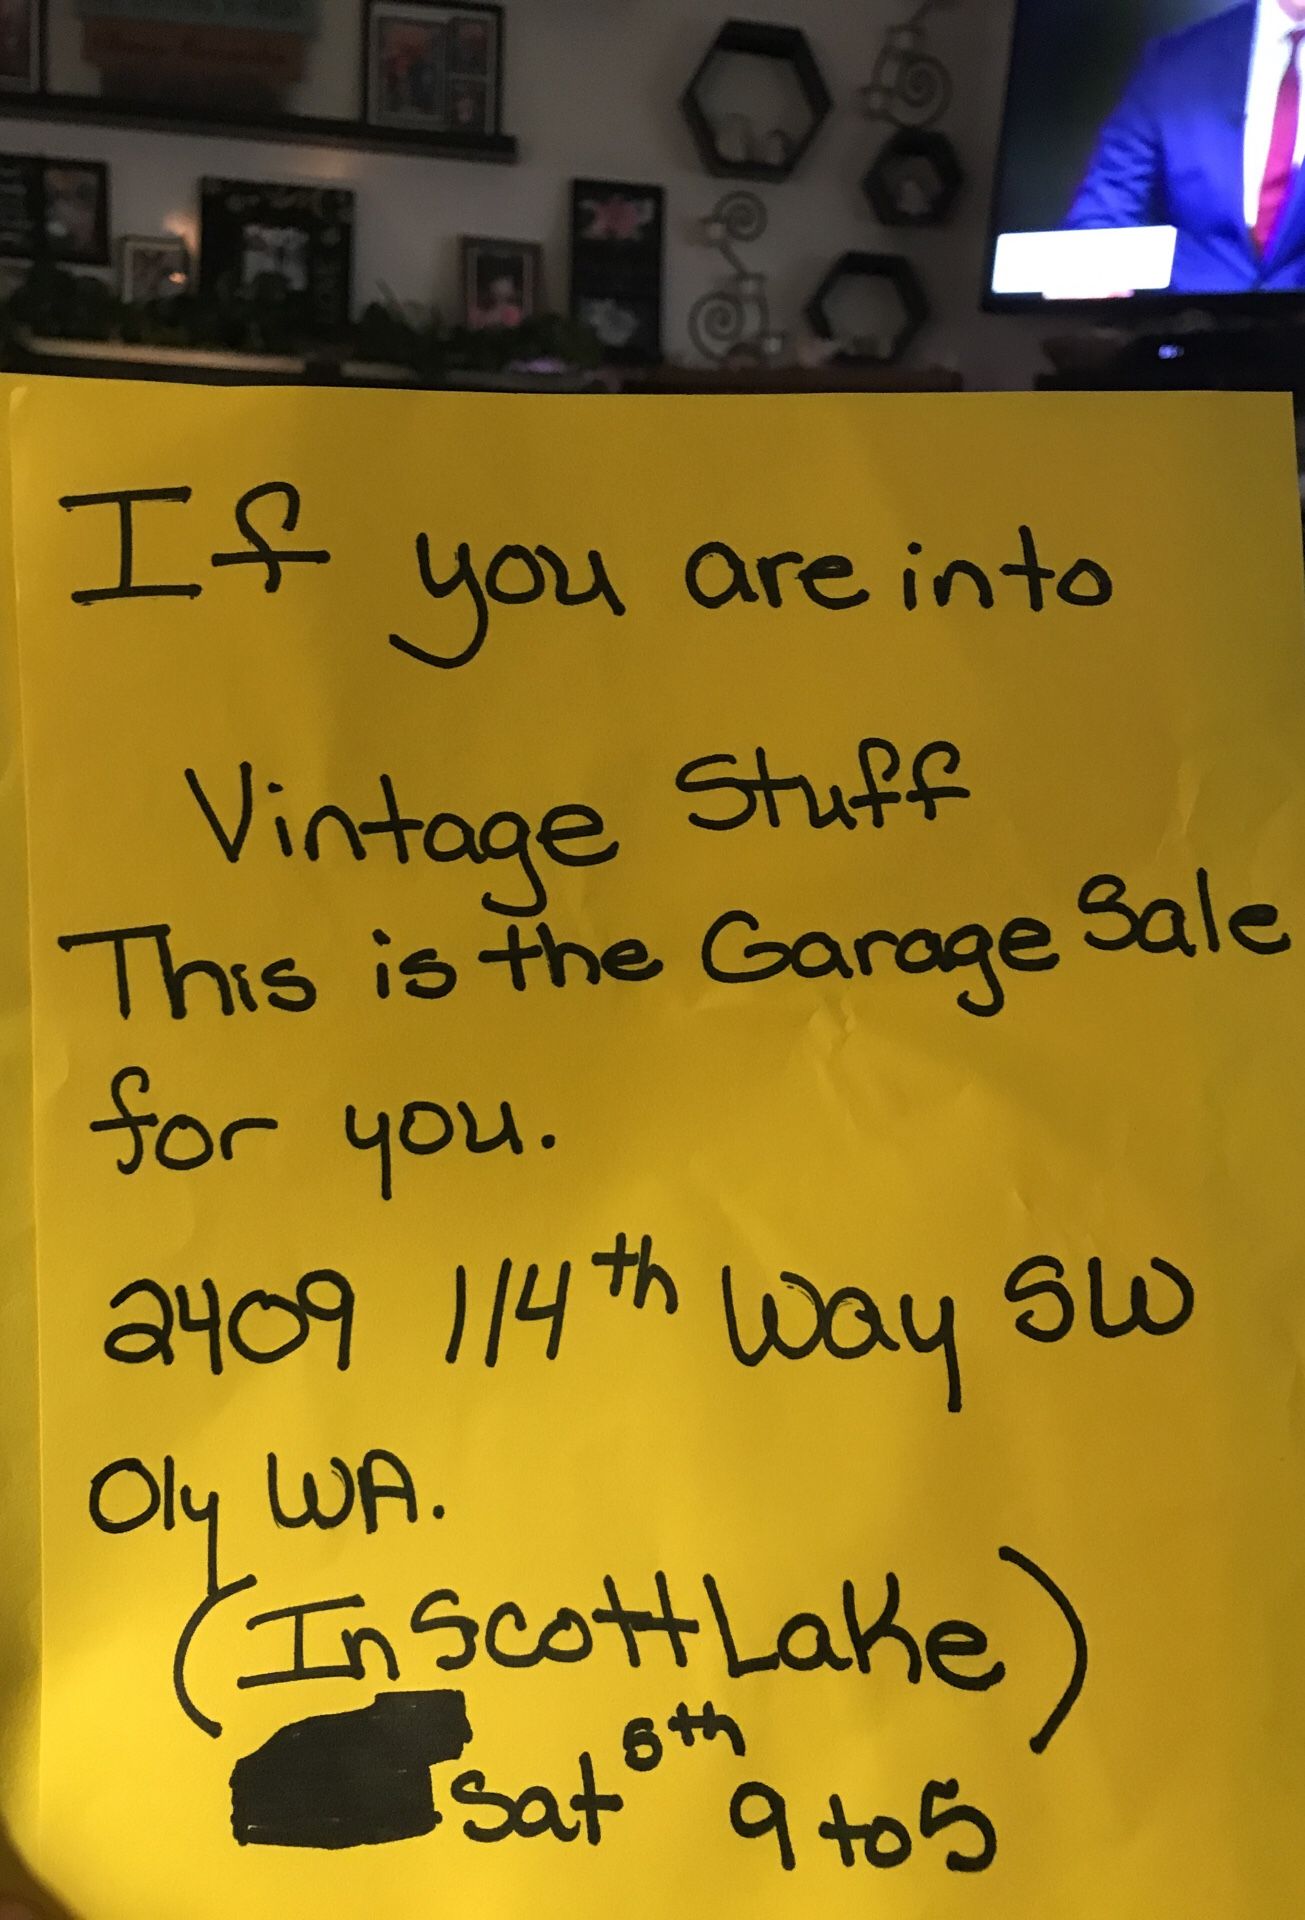 If you are into
Vintage Stuff
This is the Garage Sale
for you.
2409 114th Way SW
Oly WA.
(In Scott Lake)
Sat 5th 9 to 5